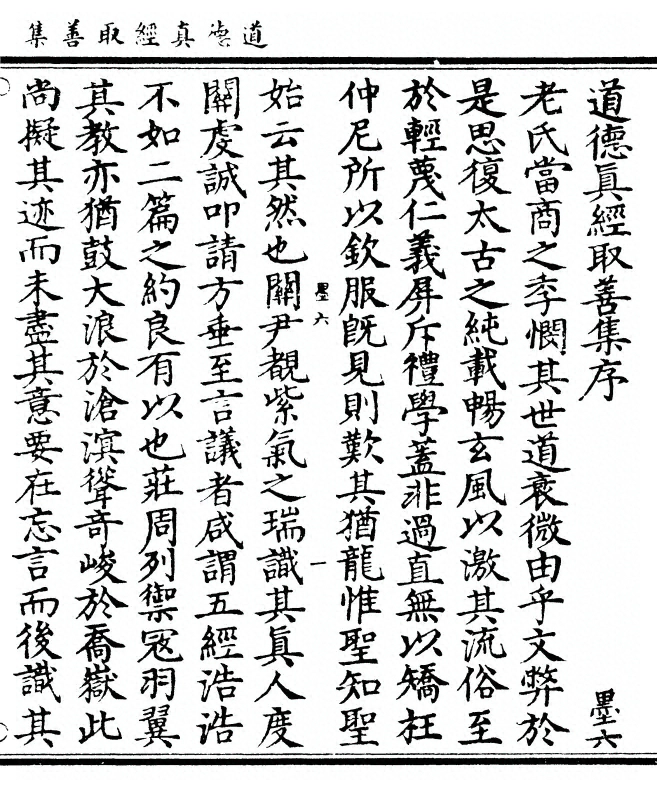 道德真經取善集
道德眞經取善集序
墨六
老氏當商之季憫其世道衰微由乎文弊於
是思復太古之純載暢玄風以激其流俗至
於輕蔑仁義屏斥禮學蓋非過直無以矯枉
仲尼所以欽服旣見則歎其猶龍惟聖知聖
墨六
一
始云其然也關尹覩紫氣之瑞識其眞人度
關虔誠叩請方垂至言議者咸謂五經浩浩
不如二篇之約良有以也莊周列禦冠羽翼
其教亦猶鼓大浪於滄溟聳奇峻於喬嶽此
尚擬其迹而未盡其意要在忘言而後識其